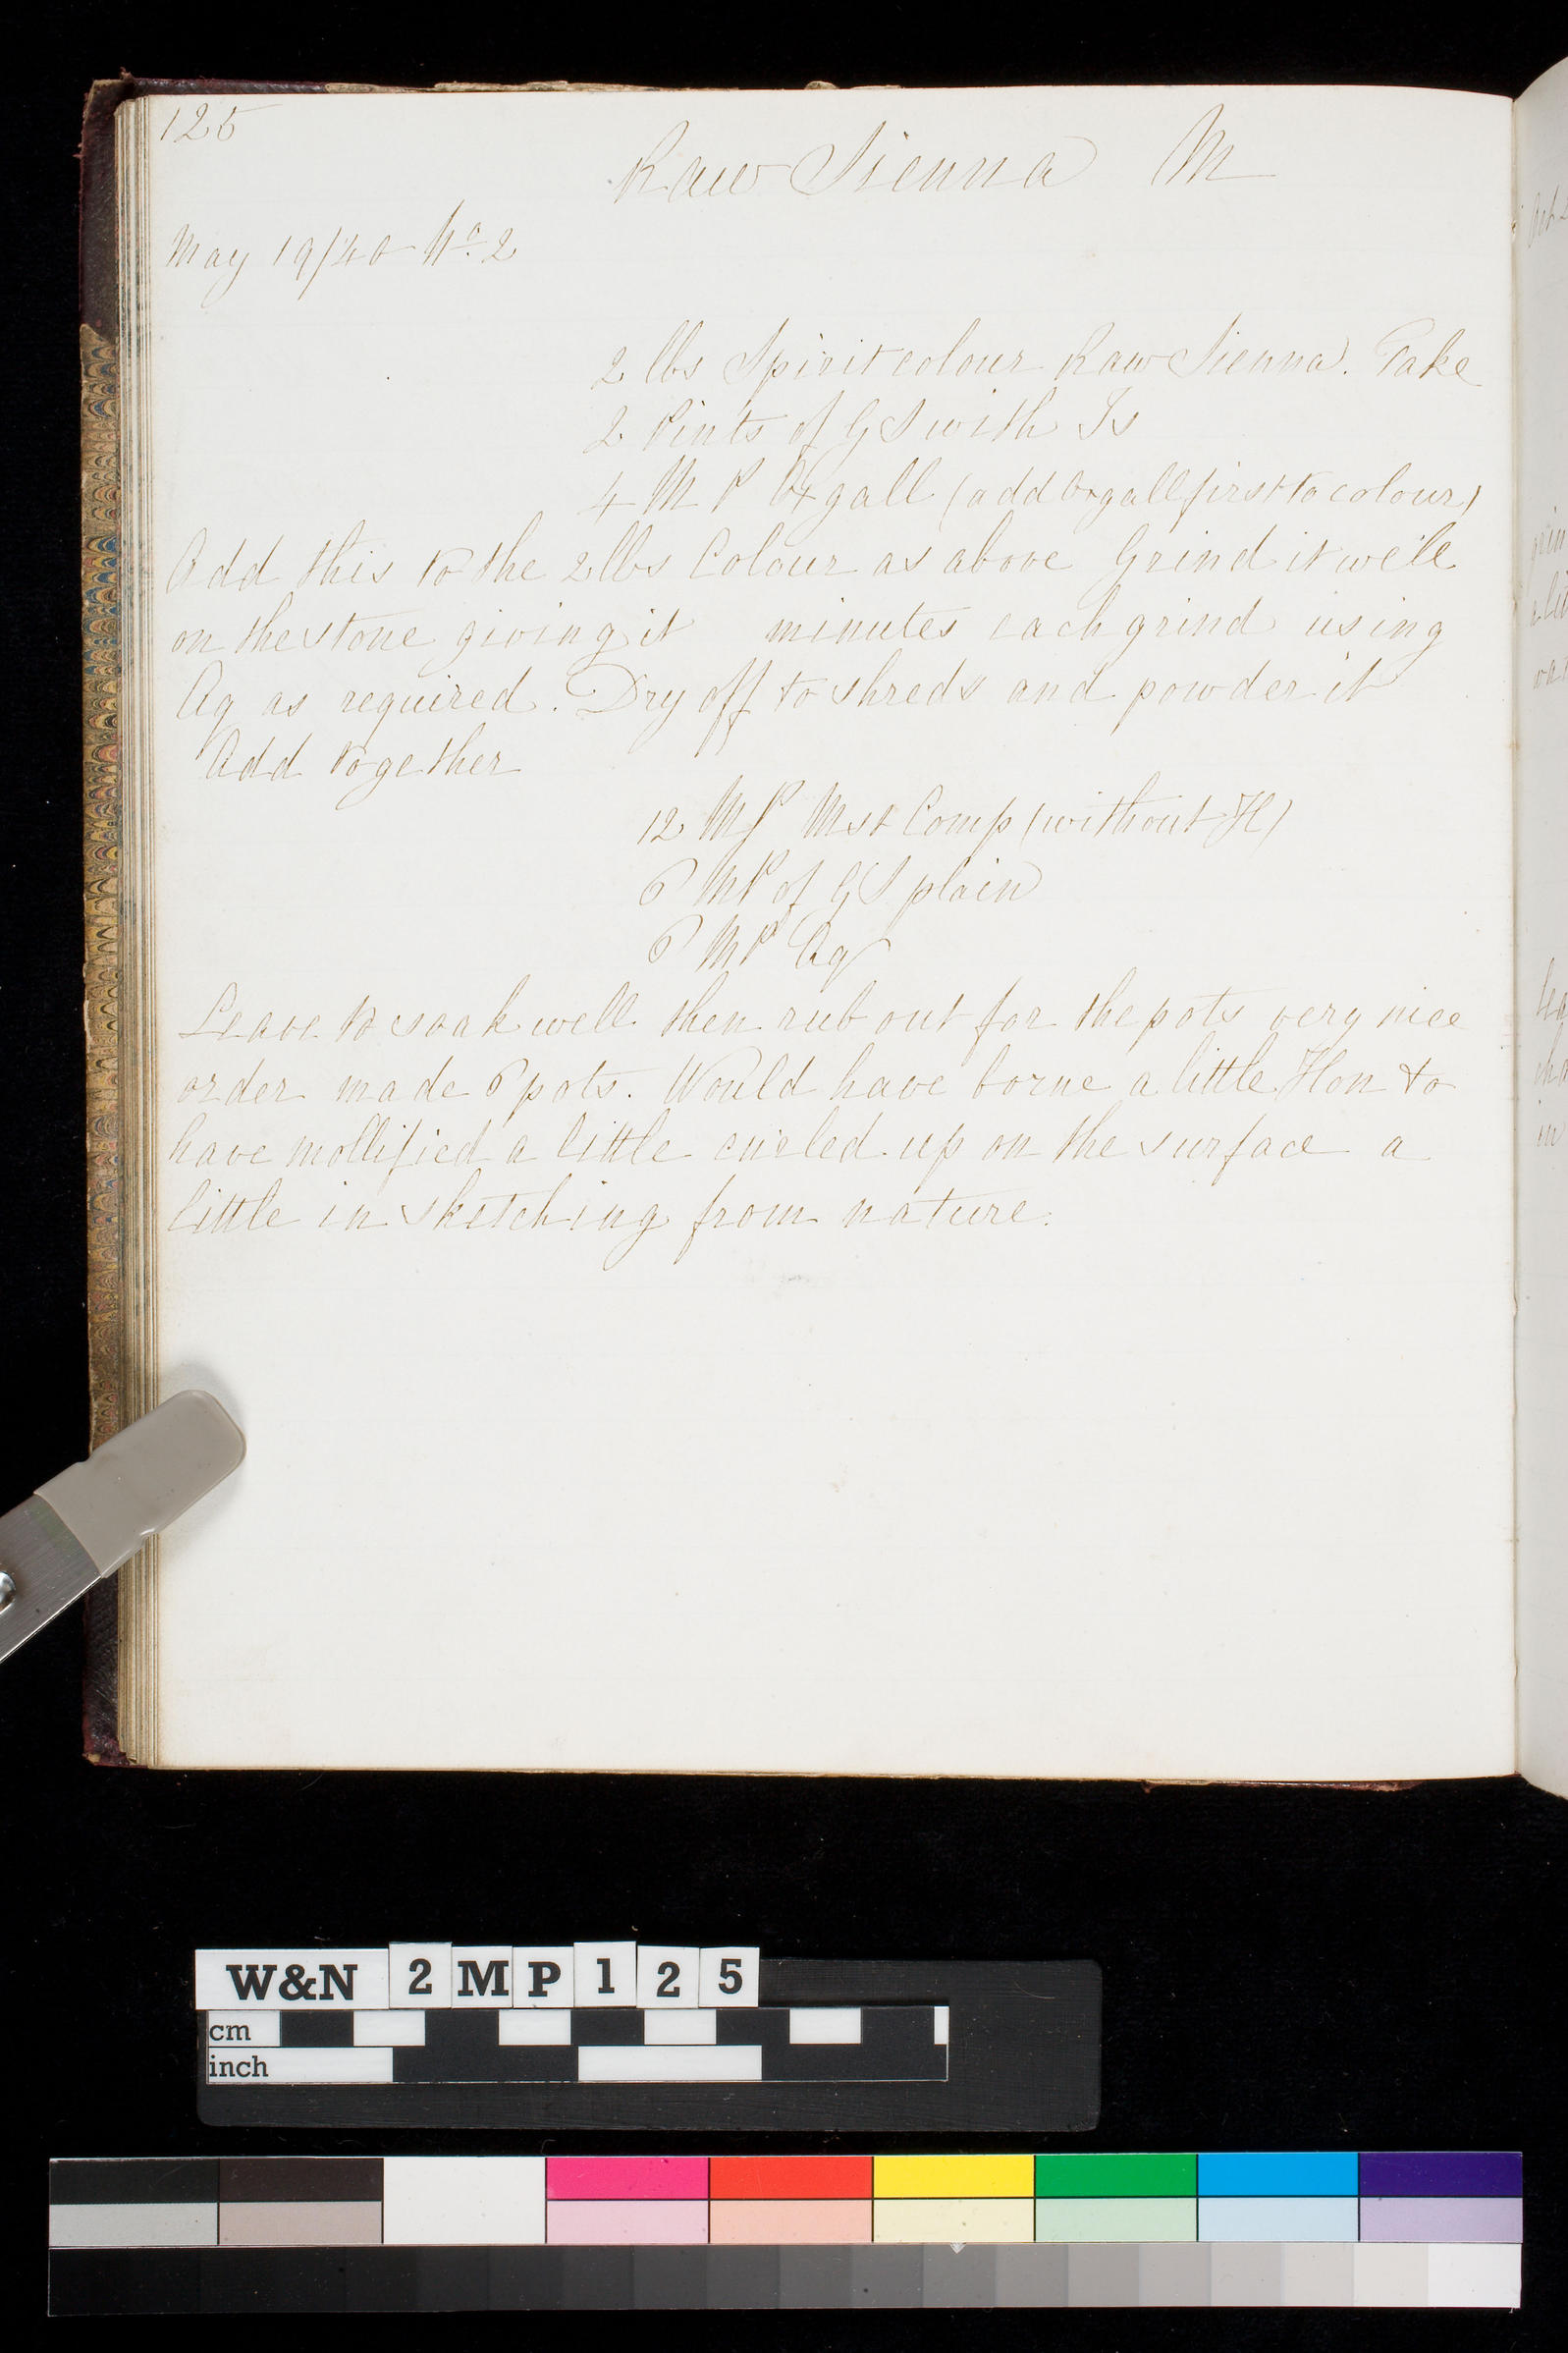 125
Raw Sienna M
May 19/40 No. 2
2 lbs Spirit colour Raw Sienna. Take
2 Pints of GS with Is
4 M P Oxgall (add Oxgall first to colour)
Add this to the 2 lbs Colour as above Grind it well
on the stone giving it minutes each grind using
Aq as required. Dry off to shreds and powder it
Add together
12 MP Mst Comp (without H)
6 MP of GS plain
6 MP Aq
Leave to soak well then rub out for the pots very nice
order made 6 pots. Would have borne a little Hon to
have mollified a little curled up on the surface a
little in sketching from nature.
W&N 2MP125
cm
inch